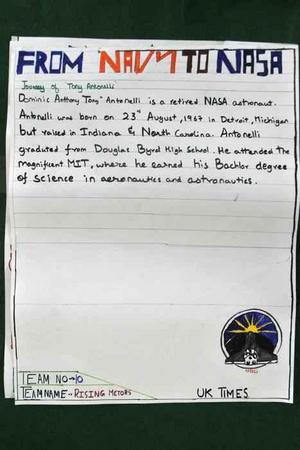 FROM NAVY TO NASA
Journey of Tony Antonelli
Dominic Anthony "Tony" Antonelli is a retired NASA astronaut.
Antonelli was born on 23rd August, 1967 in Detroit, Michigan
but raised in Indiana & North Carolina. Antonelli
graduted from Douglas Byrd High School. He attended the
magnificent MIT, where he earned his Bachlor degree
of science in aeronautics and astronautics.
TEAM NO→10
TEAM NAME→RISING METORS
UK TIMES